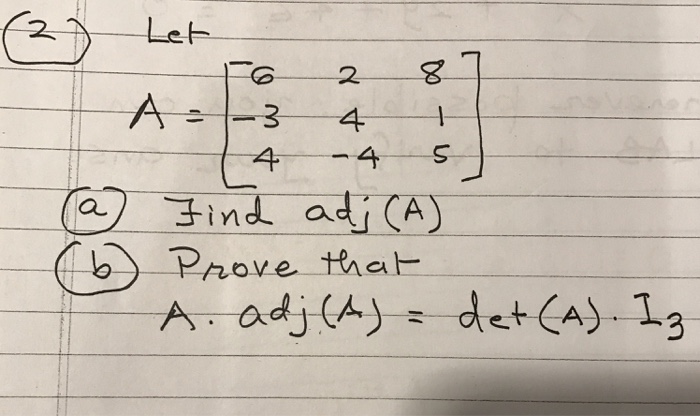 (2) Let
A = [ 6 2 8
-3 4 1
4 -4 5 ]
(a) Find adj (A)
(b) Prove that
A . adj (A) = det (A) . I₃